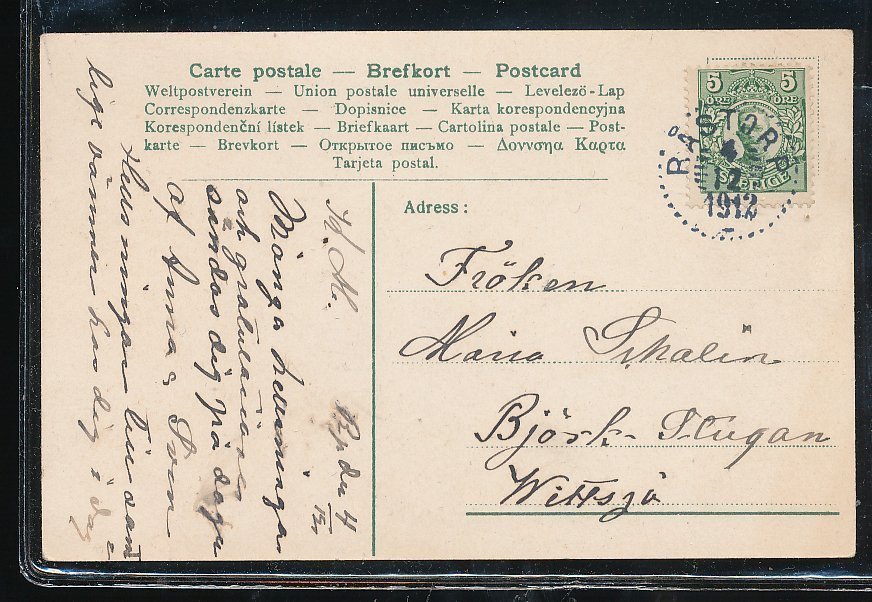 Carte postale — Brefkort — Postcard
Weltpostverein — Union postale universelle — Levelezö-Lap
Correspondenzkarte — Dopisnice — Karta korespondencyjna
Korespondenční lístek — Briefkaart — Cartolina postale — Post-
karte — Brevkort — Открытое письмо — Δουνσηα Καρτα
Tarjeta postal.
5 5
ÖRE ÖRE
SVERIGE
RÅGTORP
4
12
1912
Adress:
Fröken
Maria
Björk-Stugan
Wittsjö
den 4/12
Många
och gratulationer
sändas dig på
af Anna & Sven
dig i dag